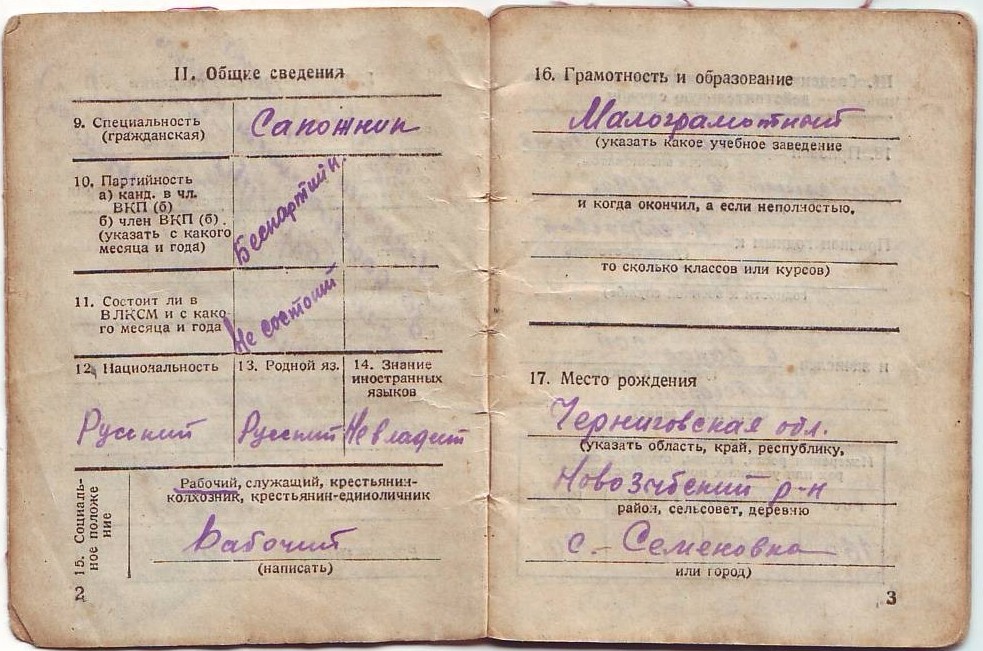 II. Общие сведения
9. Специальность
(гражданская)
Сапожник
10. Партийность
а) канд. в чл.
ВКП (б)
б) член ВКП (б).
(указать с какого
месяца и года)
Беспартийн.
11. Состоит ли в
ВЛКСМ и с како-
го месяца и года
Не состоит
12. Национальность
Русский
13. Родной яз.
Русский
14. Знание
иностранных
языков
Не владеит
15. Социаль-
ное положе
ние
Рабочий, служащий, крестьянин-
колхозник, крестьянин-единоличник
Рабочий
(написать)
2
16. Грамотность и образование
Малограмотный
(указать какое учебное заведение
и когда окончил, а если неполностью,
то сколько классов или курсов)
17. Место рождения
Черниговская обл.
(указать область, край, республику,
Новозыбский р-н
район, сельсовет, деревню
с. Семеновка
или город)
3